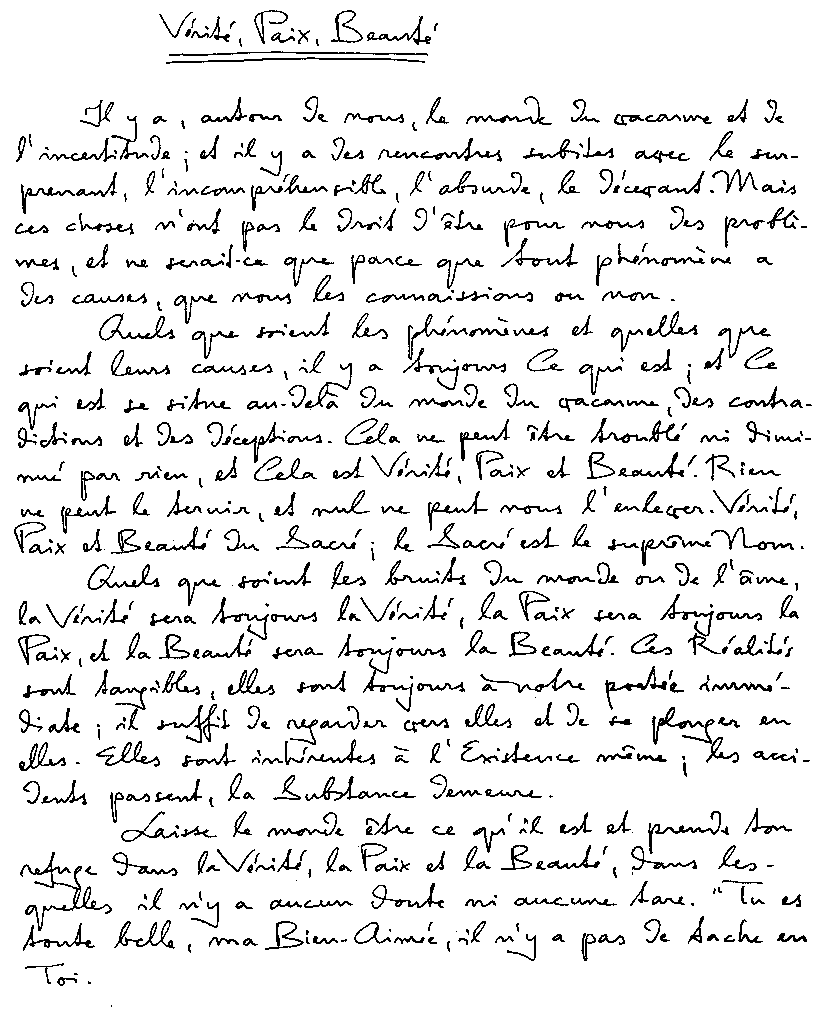 Vérité, Paix, Beauté
Il y a, autour de nous, le monde du vacarme et de
l'incertitude; et il y a des rencontres subites avec le sur-
prenant, l'incompréhensible, l'absurde, le décevant. Mais
ces choses n'ont pas le droit d'être pour nous des problè-
mes, et ne serait-ce que parce que tout phénomène a
des causes, que nous les connaissions ou non.
Quels que soient les phénomènes et quelles que
soient leurs causes, il y a toujours Ce qui est; et Ce
qui est se situe au-delà du monde du vacarme, des contra-
dictions et des déceptions. Cela ne peut être troublé ni dimi-
nué par rien, et Cela est Vérité, Paix et Beauté. Rien
ne peut le ternir, et nul ne peut nous l'enlever. Vérité,
Paix et Beauté du Sacré; le Sacré est le suprême Nom.
Quels que soient les bruits du monde ou de l'âme,
la Vérité sera toujours la Vérité, la Paix sera toujours la
Paix, et la Beauté sera toujours la Beauté. Ces Réalités
sont tangibles, elles sont toujours à notre portée immé-
diate; il suffit de regarder vers elles et de se plonger en
elles. Elles sont inhérentes à l'Existence même; les acci-
dents passent, la Substance demeure.
Laisse le monde être ce qu'il est et prends ton
refuge dans la Vérité, la Paix et la Beauté, dans les-
quelles il n'y a aucun doute ni aucune tare. "Tu es
toute belle, ma Bien-Aimée, il n'y a pas de tache en
Toi.